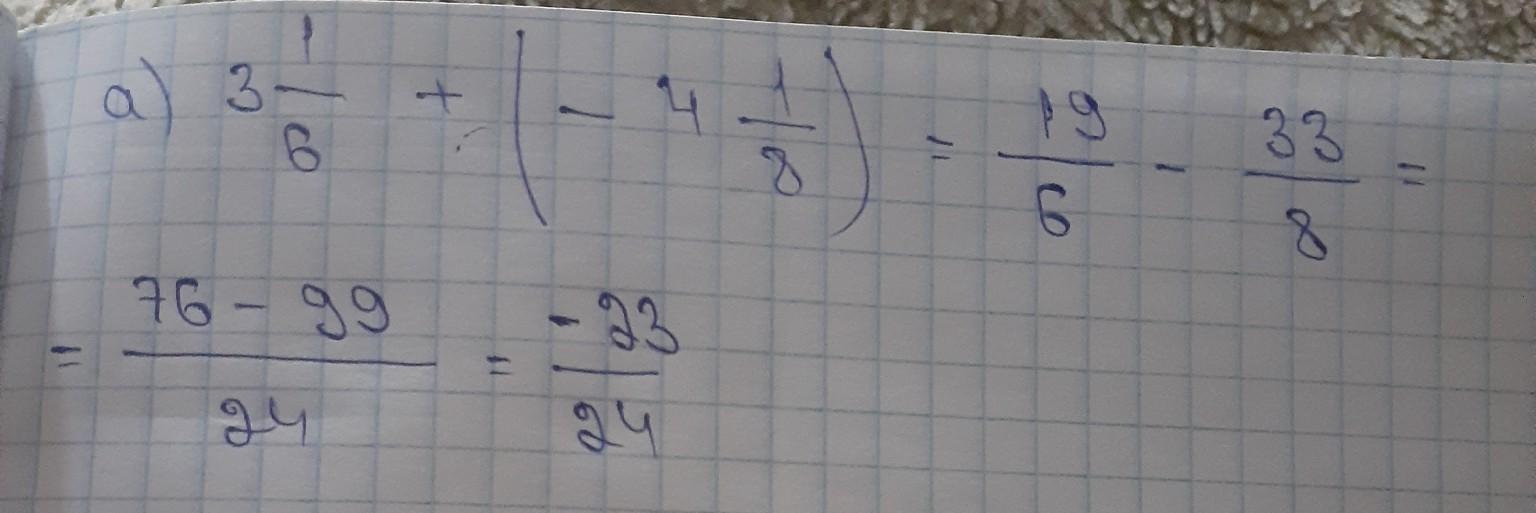 а) 3 1/6 + (- 4 1/8) = 19/6 - 33/8 =
= 76 - 99/24 = -23/24